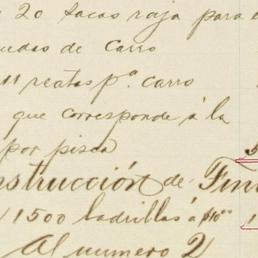 20 tacas raja para
uedas de Carro
11 reatas p.ª carro
que corresponde á la
por pisca
nstrucción de Fin
1500 ladrillas á $10.00
Al numero 2